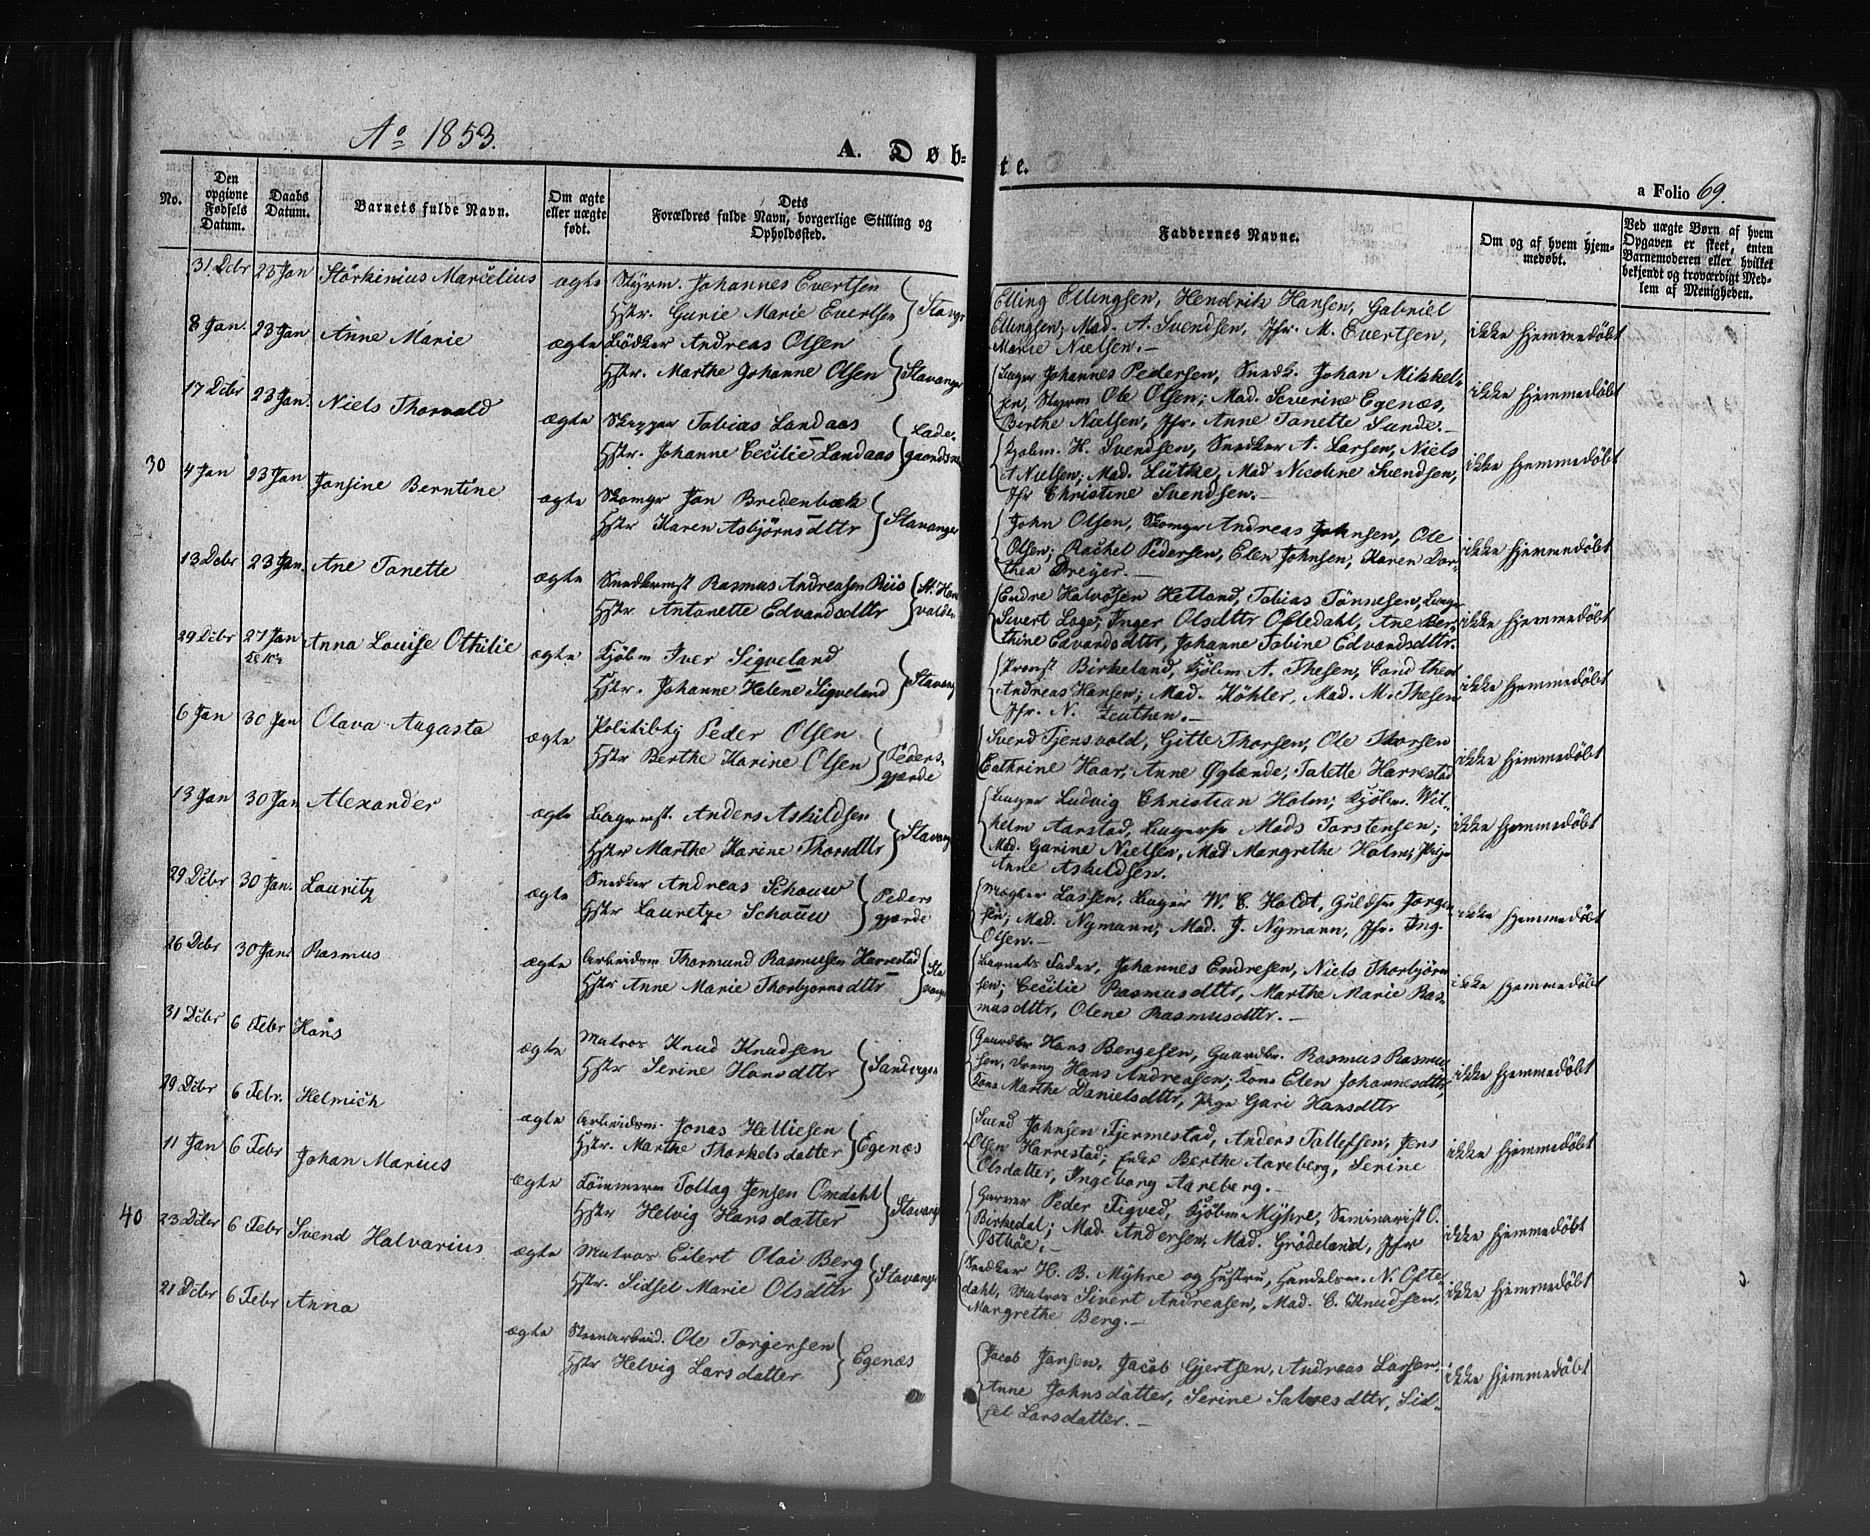 Aº 1853.
A. Døb-
te.
a Folio 69.
No.
Den
opgivne
Fødsels
Datum.
Daabs
Datum.
Barnets fulde Navn.
Om ægte
eller uægte
født.
Dets
Forældres fulde Navn, borgerlige Stilling og
Opholdssted.
Faddernes Navne.
Om og af hvem hjem-
medøbt.
Ved uægte Børn af hvem
Opgaven er skeet, enten
Barnemoderen eller hvilket
bekjendt og troværdigt Med-
lem af Menigheden.
31 Dcbr 23 Jan Störkinius Marcelius ægte Styrm. Johannes Evertsen
Hstr. Gurie Marie Evertsen Stavgr
Elling Ellingsen, Hendrik Hansen, Gabriel
Ellingsen; Mad. A. Svendsen, Jfr. M. Evertsen,
Marie Nielsen.—
ikke hjemmedøbt
8 Jan. 23 Jan Anne Marie ægte Bödker Andreas Olsen
Hstr. Marthe Johanne Olsen Stavanger
Johannes Pedersen, Snedk. Johan Mikkel-
sen, Styrm Ole Olsen; Mad. Severine Egenæs,
Birthe Nielsen, Jfr. Anne Tonette Sunde.—
ikke hjemmedøbt
17 Dcbr 23 Jan. Niels Thorvald ægte Skipper Tobias Landaas
Hstr. Johanne Cecilie Landaas Lade-
gaardsv
Kjøbm. H. Svendsen, Snedker A. Larsen, Niels
A Nielsen; Mad. Lütke, Mad Nicoline Svendsen,
Jfr Christine Svendsen.—
ikke hjemmedøbt
30 4 Jan 23 Jan Jonsine Berntine ægte Skomgr Jan Bredenbæk
Hstr Karen Asbjørnsdttr Stavanger
John Olsen, Skomgr Andreas Johnsen, Ole
Olsen; Rachel Pedersen, Elen Johnsen, Karen Dor-
thea Dreyer.—
ikke hjemmedøbt
13 Dcbr 23 Jan. Ane Tonette ægte Snedkermst Rasmus Andreasen Riis
Hstr Antonette Edvardsdttr
Endre Halvorsen Hetland, Tobias Tönnesen,
Sivert Lage; Inger Olsdttr Oftedahl, Ane Ber-
thine Edvardsdttr, Johanne Tobine Edvardsdttr.
ikke hjemmedøbt
29 Dcbr 27 Jan Anna Louise Othilie ægte Kjöbm Iver Sigveland
Hstr. Johanne Helene Sigveland Stavang
Provst Birkeland, Kjöbm A. Thesen, Cand theol
Andreas Hansen; Mad. Köhler, Mad. M. Thesen
Jfr. N. Zeuthen.—
ikke hjemmedøbt
6 Jan 30 Jan Olava Augasta ægte Politibtj Peder Olsen.
Hstr Berthe Karine Olsen Peders-
gjærde
Svend Tjensvold, Gitte Thorsen, Ole Thorsen
Cathrine Haar, Anne Øglænde, Talette Harrestad
ikke hjemmedøbt
13 Jan 30 Jan Alexander ægte Bagermst. Anders Askildsen
Hstr Marthe Karine Thorsdttr Stavang
Ludvig Christian Holm; Kjöbm. Wil-
helm Aarstad, Mads Torstensen;
Mad. Garine Nielsen, Mad Margrethe Holm; Pige
Anne Askildsen.
ikke hjemmedøbt
29 Dcbr 30 Jan. Lauritz ægte Snedker Andreas Schouw
Hstr Lauretze Schouw Peders
gjærde
Mægler Lassen, W. C. Holdt, Guldsm Jorgen-
sen; Mad. Nymann; Mad. J. Nymann, Jfr. Ing.
Olsen.—
ikke hjemmedøbt
26 Dcbr 30 Jan. Rasmus ægte Arbeidsm Thormund Rasmusen Harrestad
Hstr Anne Marie Thorbjørnsdttr Sta
vange
Barnets Fader, Johannes Endresen, Niels Thorbjørn-
sen; Cecilie Rasmusdttr, Marthe Marie Ras-
musdttr, Olene Rasmusdttr.—
ikke hjemmedøbt
31 Dcbr 6 Febr Hans ægte Matros Knud Knudsen
Hstr Serine Hansdttr Sandvigen
Gaardbr Hans Bergesen, Gaardbr. Rasmus Rasmu-
sen, Dreng Hans Andreasen; Kone Elen Johannesdttr,
Kone Marthe Danielsdttr, Pige Gari Hansdttr
ikke hjemmedøbt
29 Dcbr 6 Febr. Helmich ægte Arbeidsm. Jonas Helliesen
Hstr. Marthe Thorkelsdatter Egenæs
Svend Johnsen Tjermestad, Anders Tallefsen, Jens
Olsen Harrestad; Berthe Aareberg, Serine
Olsdatter, Ingeborg Aareberg.—
ikke hjemmedøbt
11 Jan 6 Febr Johan Marius ægte Tömmerm Tollag Jensen Omdahl
Hstr Helvig Hansdatter Stavang
Garver Peder Tigved, Kjöbm Myhre, Seminarist O.
Birkedal; Mad. Andersen, Mad. Grödeland, Jfr
Østböe.—
ikke hjemmedøbt
40 23 Dcbr 6 Febr Svend Halvarius ægte Matros Eilert Olai Berg
Hstr. Sidsel Marie Olsdttr Stavange
Snedker H. B. Myhre og Hustru, Handelsm. N. Ofte-
dahl, Matros Sivert Andreasen, Mad. C. Knudsen,
Margrethe Berg.—
ikke hjemmedøbt
21 Dcbr 6 Febr Anna ægte Steenarbeid. Ole Torgersen
Hstr Helvig Larsdatter Egenæs
Jacob Jansen, Jacob Gjertsen, Andreas Larsen
Anne Johnsdatter, Serine Salvesdttr, Sid-
sel Larsdatter.—
ikke hjemmedøbt